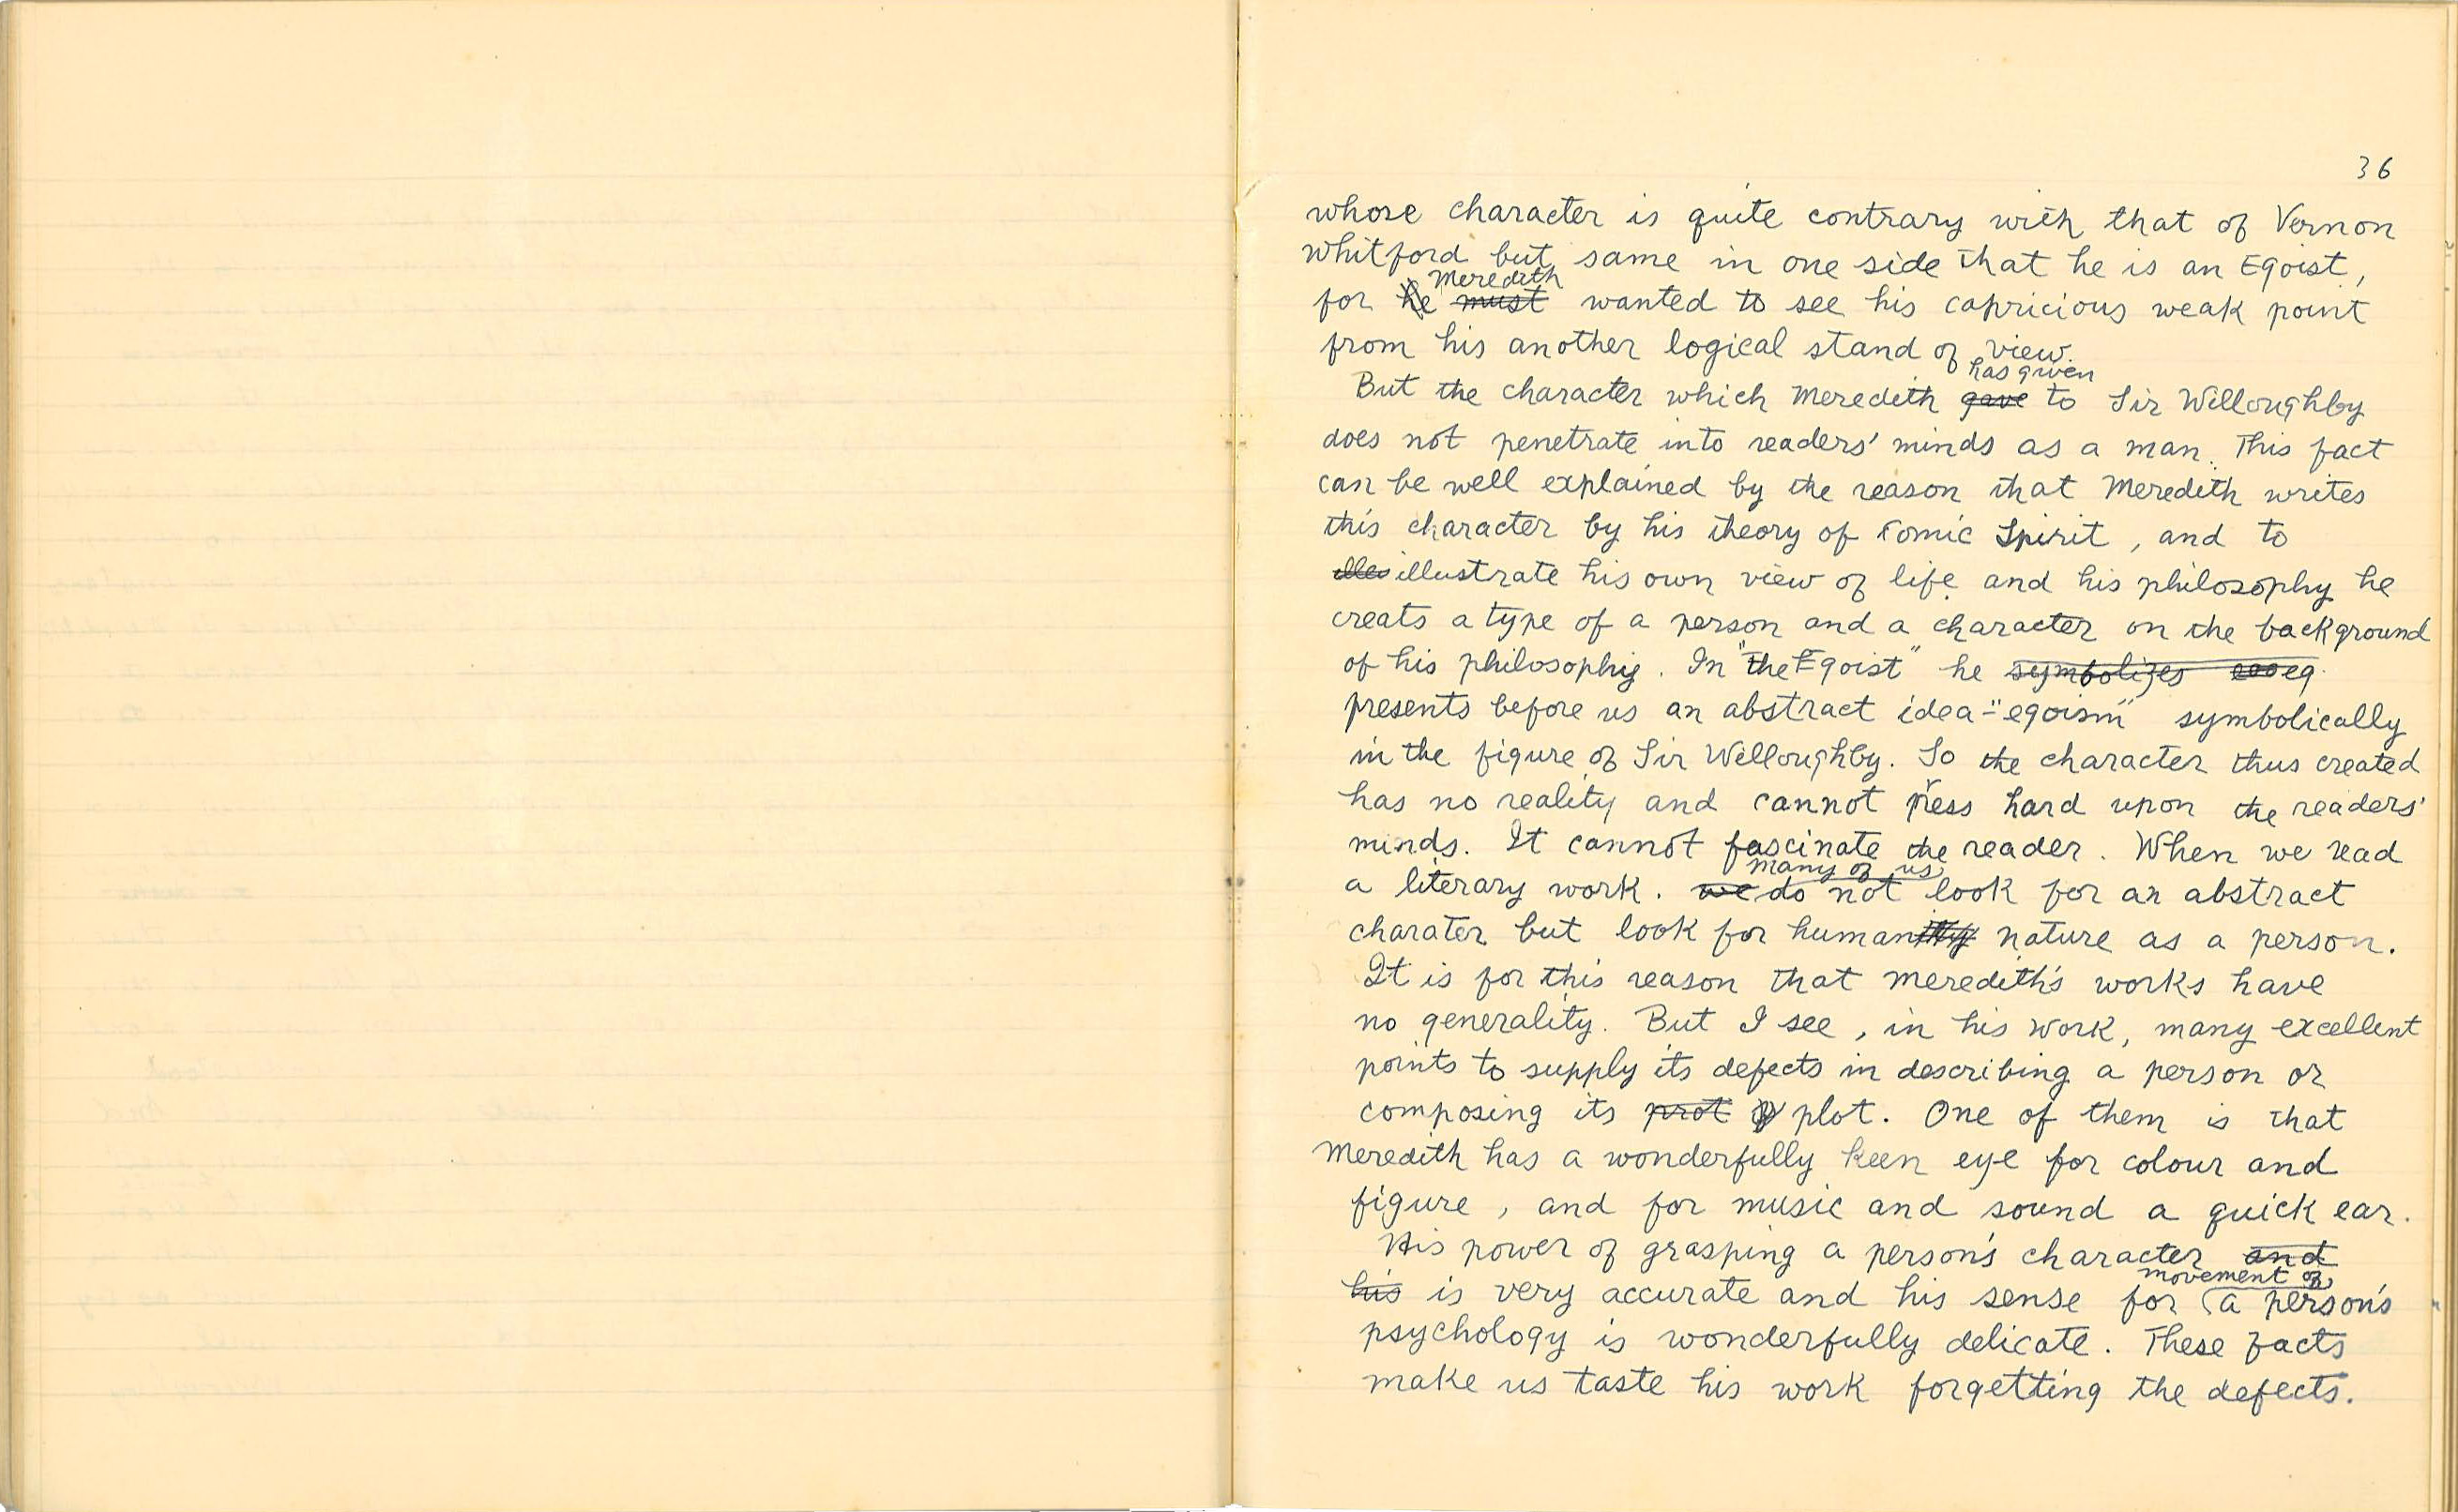 36
whose character is quite contrary with that of Vernon
Whitford but same in one side that he is an Egoist,
for he must Meredith wanted to see his capricious weak point
from his another logical stand of view.
But the character which Meredith gave has given to Sir Willoughby
does not penetrate into readers' minds as a man. This fact
can be well explained by the reason that Meredith writes
this character by his theory of Comic Spirit, and to
illustrate his own view of life and his philosophy he
creats a type of a person and a character on the background
of his philosophy. In "the Egoist" he symbolizes
presents before us an abstract idea-"egoism" symbolically
in the figure of Sir Willoughby. So the character thus created
has no reality and cannot press hard upon the readers'
minds. It cannot fascinate the reader. When we read
a literary work. we many of us do not look for an abstract
charater but look for human nature as a person.
It is for this reason that Meredith's works have
no generality. But I see, in his work, many excellent
points to supply its defects in describing a person or
composing its prot plot. One of them is that
Meredith has a wonderfully keen eye for colour and
figure, and for music and sound a quick ear.
His power of grasping a person's character and
his is very accurate and his sense for movement of a person's
psychology is wonderfully delicate. These facts
make us taste his work forgetting the defects.